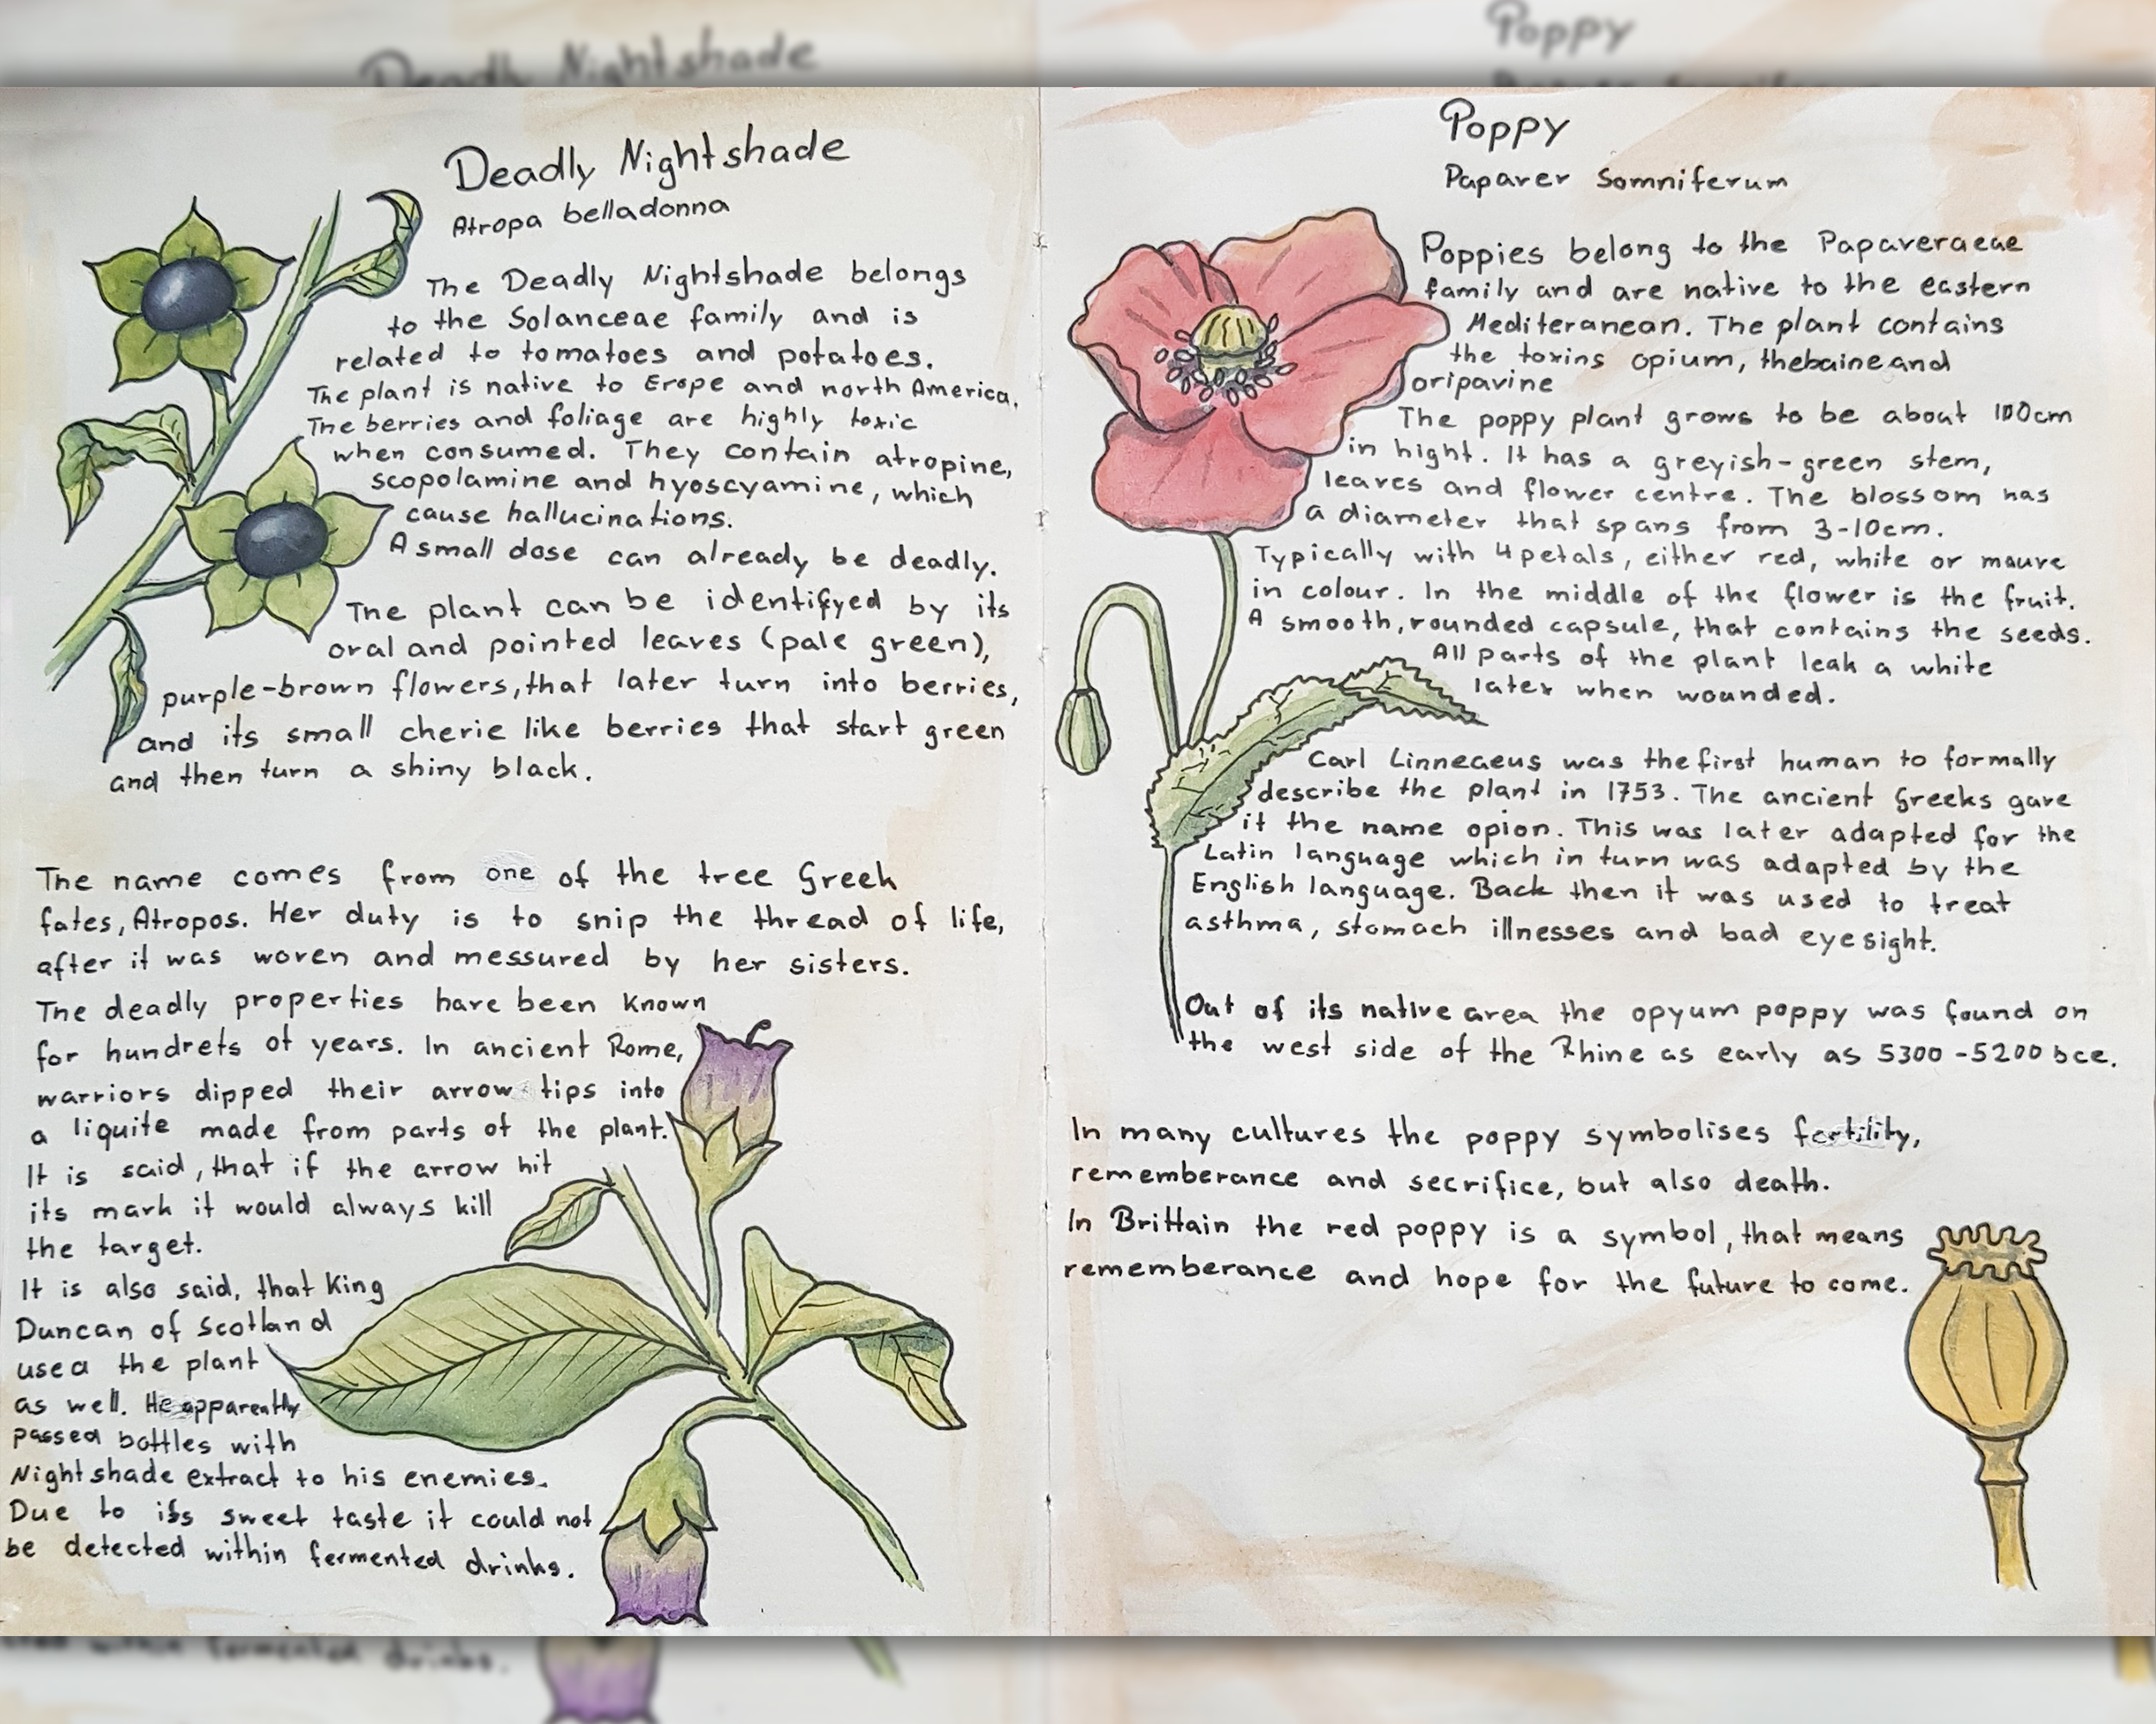 Deadly Nightshade
Atropa belladonna
The Deadly Nightshade belongs
to the Solanceae family and is
related to tomatoes and potatoes.
The plant is native to Erope and north America.
The berries and foliage are highly toxic
when consumed. They contain atropine,
scopolamine and hyoscyamine, which
cause hallucinations.
A small dose can already be deadly.
The plant can be identifyed by its
oval and pointed leaves (pale green),
purple-brown flowers, that later turn into berries,
and its small cherie like berries that start green
and then turn a shiny black.
The name comes from one of the tree Greek
fates, Atropos. Her duty is to snip the thread of life,
after it was woven and messured by her sisters.
The deadly properties have been known
for hundrets of years. In ancient Rome,
warriors dipped their arrow tips into
a liquite made from parts of the plant.
It is said, that if the arrow hit
its mark it would always kill
the target.
It is also said, that King
Duncan of Scotland
used the plant
as well. He apparently
passed bottles with
Nightshade extract to his enemies.
Due to its sweet taste it could not
be detected within fermented drinks.
Poppy
Papaver Somniferum
Poppies belong to the Papaveraeae
family and are native to the eastern
Mediteranean. The plant contains
the toxins opium, thebaine and
oripavine
The poppy plant grows to be about 100cm
in hight. It has a greyish-green stem,
leaves and flower centre. The blossom has
a diameter that spans from 3-10cm.
Typically with 4 petals, either red, white or mauve
in colour. In the middle of the flower is the fruit.
A smooth, rounded capsule, that contains the seeds.
All parts of the plant leak a white
latex when wounded.
Carl Linneaeus was the first human to formally
describe the plant in 1753. The ancient Greeks gave
it the name opion. This was later adapted for the
Latin language which in turn was adapted by the
English language. Back then it was used to treat
asthma, stomach illnesses and bad eyesight.
Out of its native area the opyum poppy was found on
the west side of the Rhine as early as 5300-5200 bce.
In many cultures the poppy symbolises fertility,
rememberance and secrifice, but also death.
In Brittain the red poppy is a symbol, that means
rememberance and hope for the future to come.